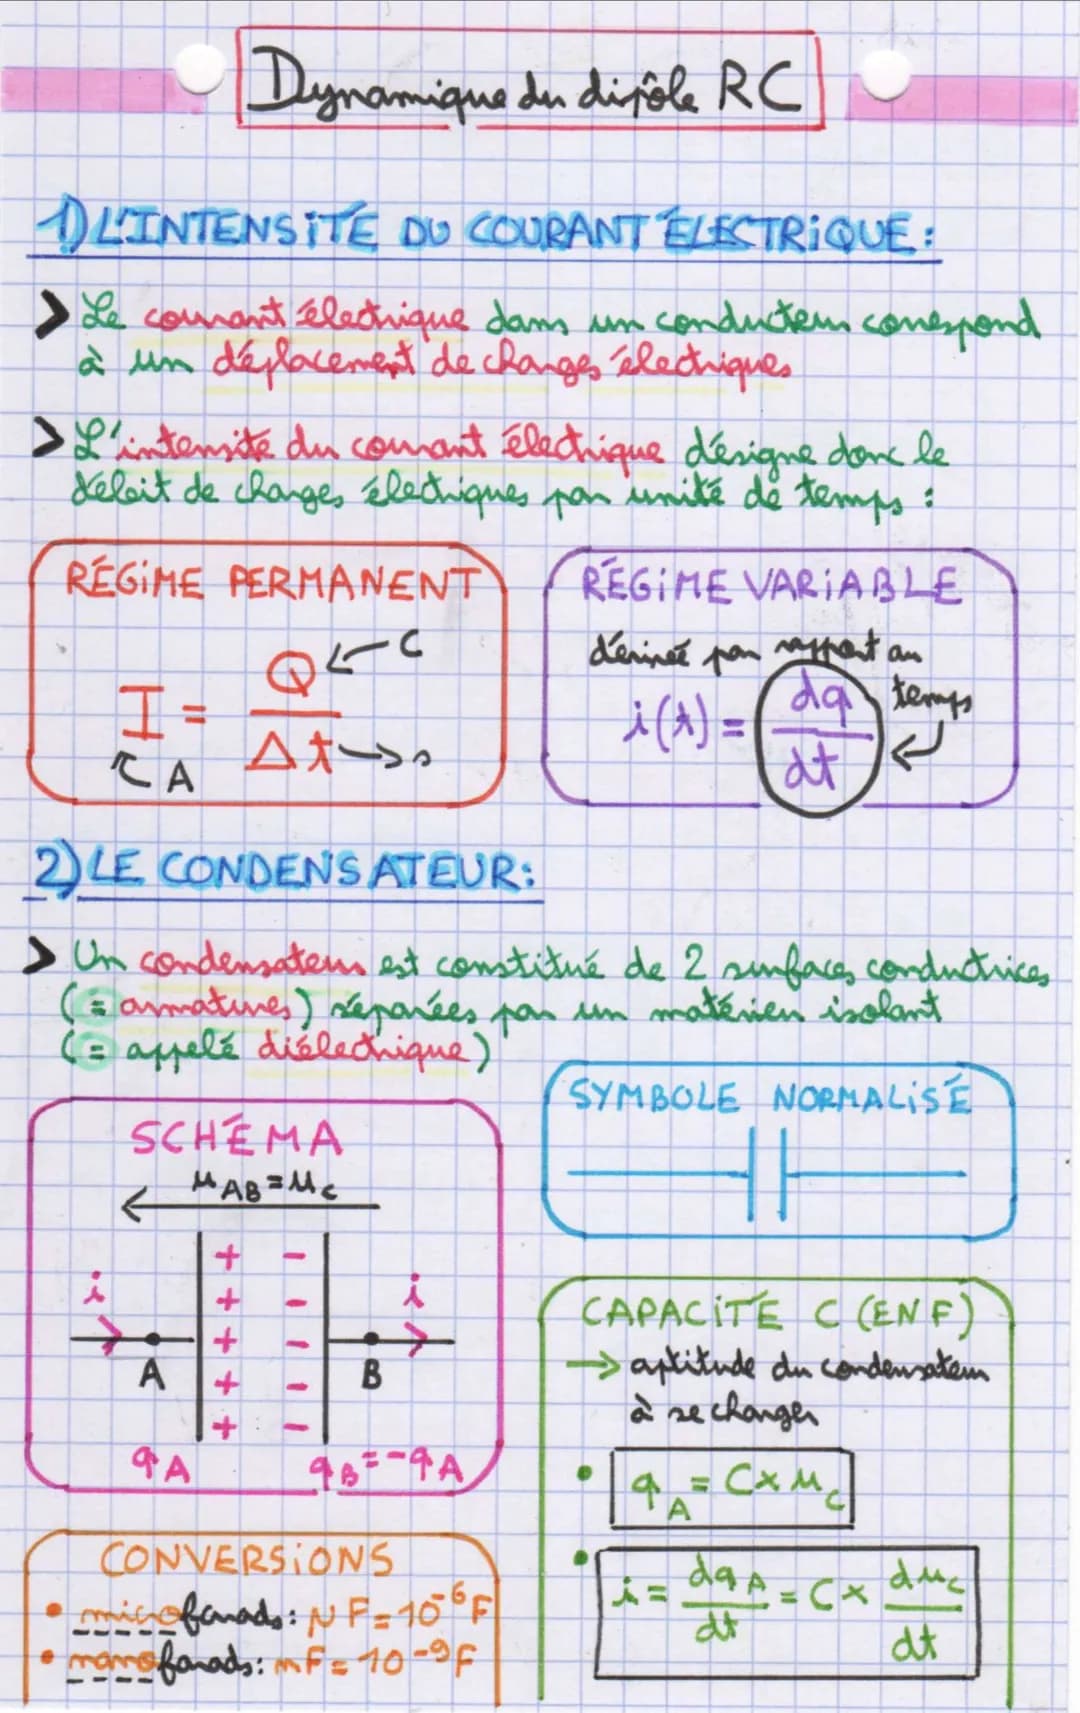 Dynamique du dipôle RC
1) L'INTENSITÉ DU COURANT ÉLECTRIQUE :
> Le courant électrique dans un conducteur correspond
à un déplacement de charges électriques
> L'intensité du courant électrique désigne donc le
débit de charges électriques par unité de temps :
RÉGIME PERMANENT
I = Q / Δt
C
A
s
RÉGIME VARIABLE
dérivée par rapport au
temps
i(t) = dq / dt
2) LE CONDENSATEUR :
> Un condensateur est constitué de 2 surfaces conductrices
(= armatures) séparées par un matérien isolant
(= appelé diélectrique)
SCHÉMA
u_AB = u_c
+ -
+ -
+ -
+ -
+ -
i
i
A
B
q_A
q_B = -q_A
SYMBOLE NORMALISÉ
CAPACITÉ C (EN F)
→ aptitude du condensateur
à se charger
• q_A = C × u_c
• i = dq_A / dt = C × du_c / dt
CONVERSIONS
• microfarads : µF = 10⁻⁶ F
• nanofarads : nF = 10⁻⁹ F